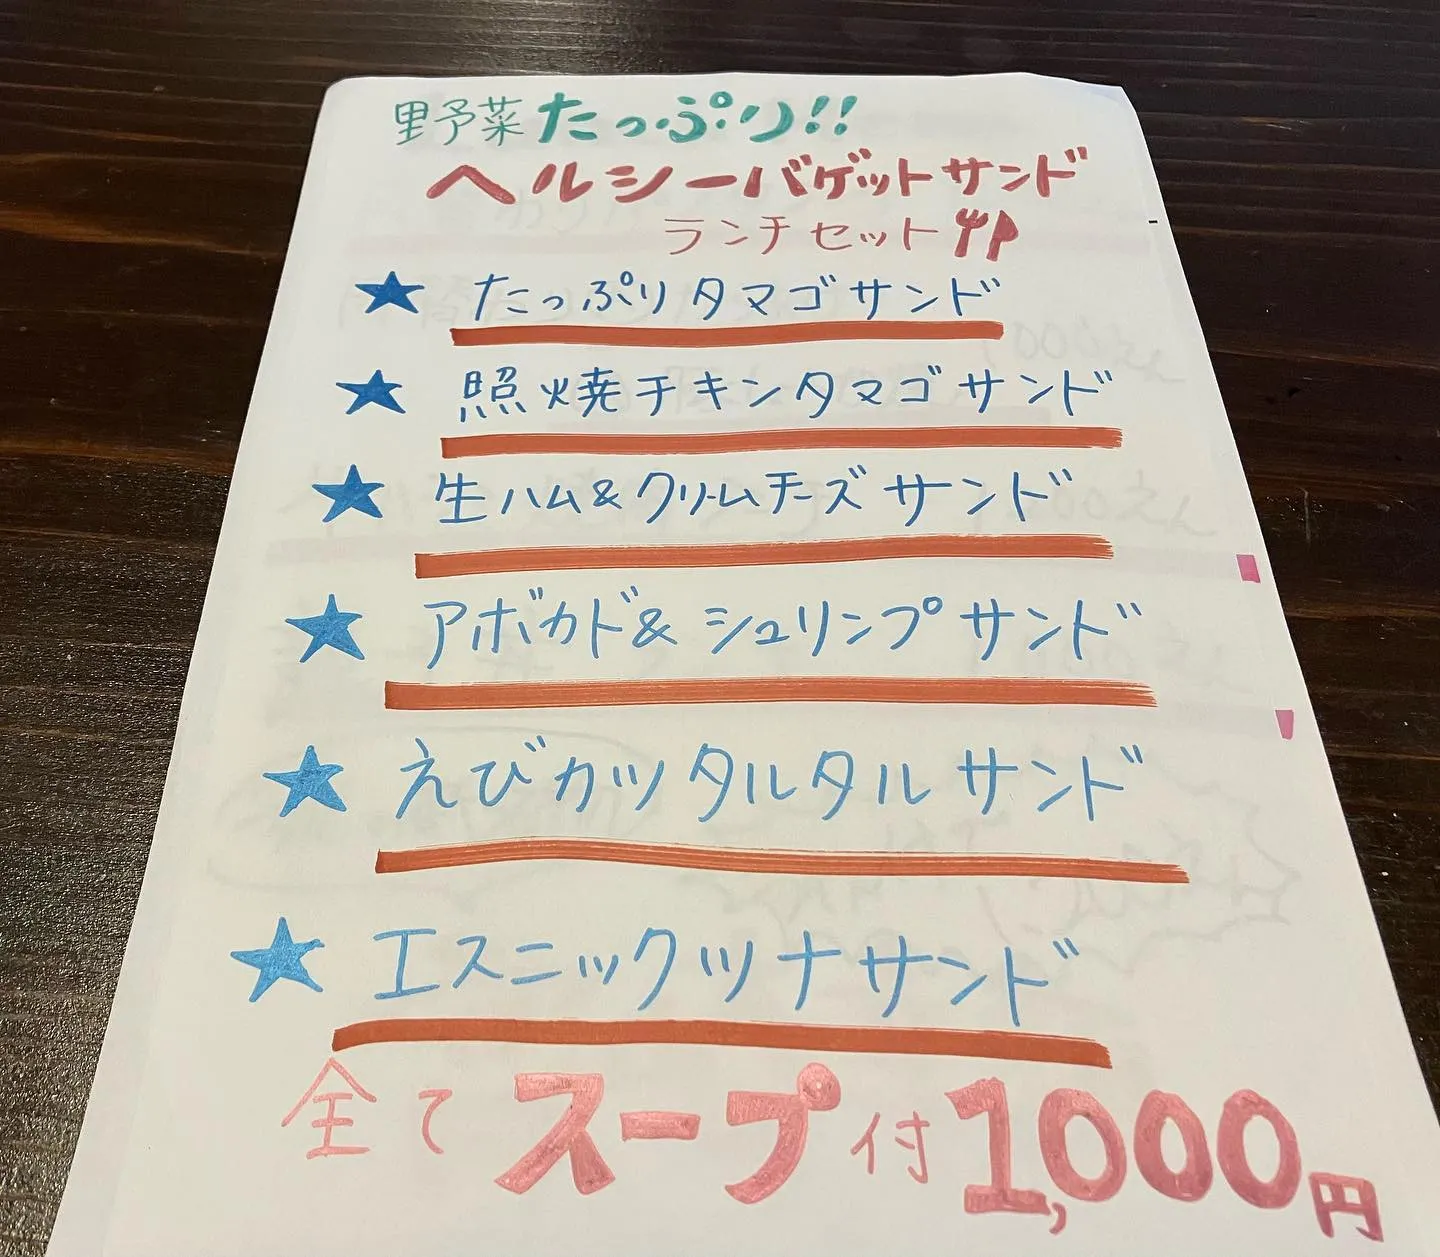 野菜たっぷり!!
ヘルシーバゲットサンド
ランチセット
★ たっぷりタマゴサンド
★ 照焼チキンタマゴサンド
★ 生ハム&クリームチーズサンド
★ アボカド&シュリンプサンド
★ えびカツタルタルサンド
★ エスニックツナサンド
全てスープ付1,000円